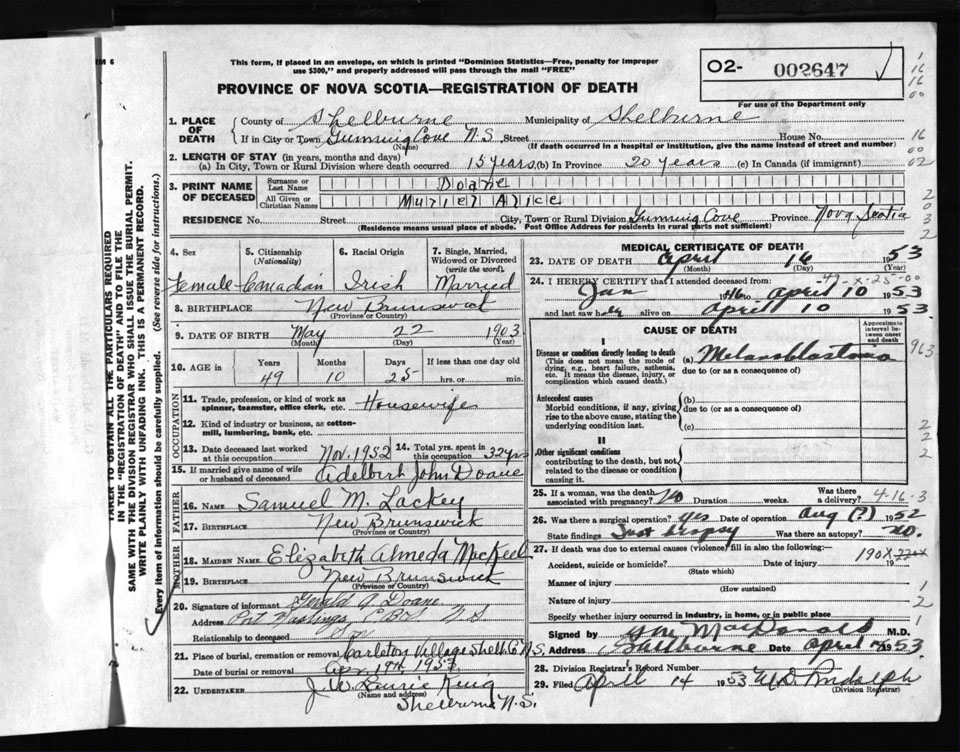 This form, if placed in an envelope, on which is printed "Dominion Statistics—Free, penalty for improper
use $300," and properly addressed will pass through the mail "FREE"
PROVINCE OF NOVA SCOTIA—REGISTRATION OF DEATH
O2- 002647
For use of the Department only
1. PLACE OF DEATH
County of Shelburne Municipality of Shelburne
If in City or Town Gunning Cove N.S. Street House No.
(Name) (If death occurred in a hospital or institution, give the name instead of street and number)
2. LENGTH OF STAY (in years, months and days)
(a) In City, Town or Rural Division where death occurred 15 years (b) In Province 20 years (c) In Canada (if immigrant)
3. PRINT NAME OF DECEASED
Surname or Last Name Doane
All Given or Christian Names Muriel Alice
RESIDENCE No. Street City, Town or Rural Division Gunning Cove Province Nova Scotia
(Residence means usual place of abode. Post Office Address for residents in rural parts not sufficient)
4. Sex
Female
5. Citizenship (Nationality)
Canadian
6. Racial Origin
Irish
7. Single, Married, Widowed or Divorced (write the word)
Married
8. BIRTHPLACE New Brunswick
(Province or Country)
9. DATE OF BIRTH May 22 1903
(Month) (Day) (Year)
10. AGE in Years Months Days If less than one day old
49 10 25 hrs. or min.
OCCUPATION
11. Trade, profession, or kind of work as
spinner, teamster, office clerk, etc. Housewife
12. Kind of industry or business, as cotton-
mill, lumbering, bank, etc.
13. Date deceased last worked at this occupation Nov. 1952
14. Total yrs. spent in this occupation 32 yrs
15. If married give name of wife
or husband of deceased Adelbert John Doane
FATHER
16. NAME Samuel M. Lackey
17. BIRTHPLACE New Brunswick
(Province or Country)
MOTHER
18. MAIDEN NAME Elizabeth Almeda MacKeel
19. BIRTHPLACE New Brunswick
(Province or Country)
20. Signature of informant Gerald A. Doane
Address Port Hastings, C.B. N.S.
Relationship to deceased Son
21. Place of burial, cremation or removal Carleton Village Shelb. Co. N.S.
Date of burial or removal Apr. 19th 1953
22. UNDERTAKER J. W. Laurie King
(Name and address)
Shelburne N.S.
MEDICAL CERTIFICATE OF DEATH
23. DATE OF DEATH April 16 1953
(Month) (Day) (Year)
24. I HEREBY CERTIFY that I attended deceased from:
Jan 1946 to April 10 1953
and last saw her alive on April 10 1953.
CAUSE OF DEATH
Approximate interval between onset and death
I
Disease or condition directly leading to death
(This does not mean the mode of
dying, e.g., heart failure, asthenia,
etc. It means the disease, injury, or
complication which caused death.)
(a) Melanoblastoma
due to (or as a consequence of)
Antecedent causes
Morbid conditions, if any, giving
rise to the above cause, stating the
underlying condition last.
(b)
due to (or as a consequence of)
(c)
II
Other significant conditions
contributing to the death, but not
related to the disease or condition
causing it.
25. If a woman, was the death
associated with pregnancy? No Duration weeks. Was there a delivery?
4-16-3
26. Was there a surgical operation? yes Date of operation Aug (?) 1952
State findings Just biopsy Was there an autopsy? no.
27. If death was due to external causes (violence) fill in also the following:—
190X
Accident, suicide or homicide? Date of injury 19
(State which)
Manner of injury
(How sustained)
Nature of injury
Specify whether injury occurred in industry, in home, or in public place
Signed by MacDonald M.D.
Address Shelburne Date April 1953
28. Division Registrar's Record Number
29. Filed April 14 1953
(Division Registrar)
TAKEN TO OBTAIN ALL THE PARTICULARS REQUIRED
IN THE "REGISTRATION OF DEATH" AND TO FILE THE
SAME WITH THE DIVISION REGISTRAR WHO SHALL ISSUE THE BURIAL PERMIT.
WRITE PLAINLY WITH UNFADING INK. THIS IS A PERMANENT RECORD.
Every item of information should be carefully supplied. (See reverse side for instructions.)